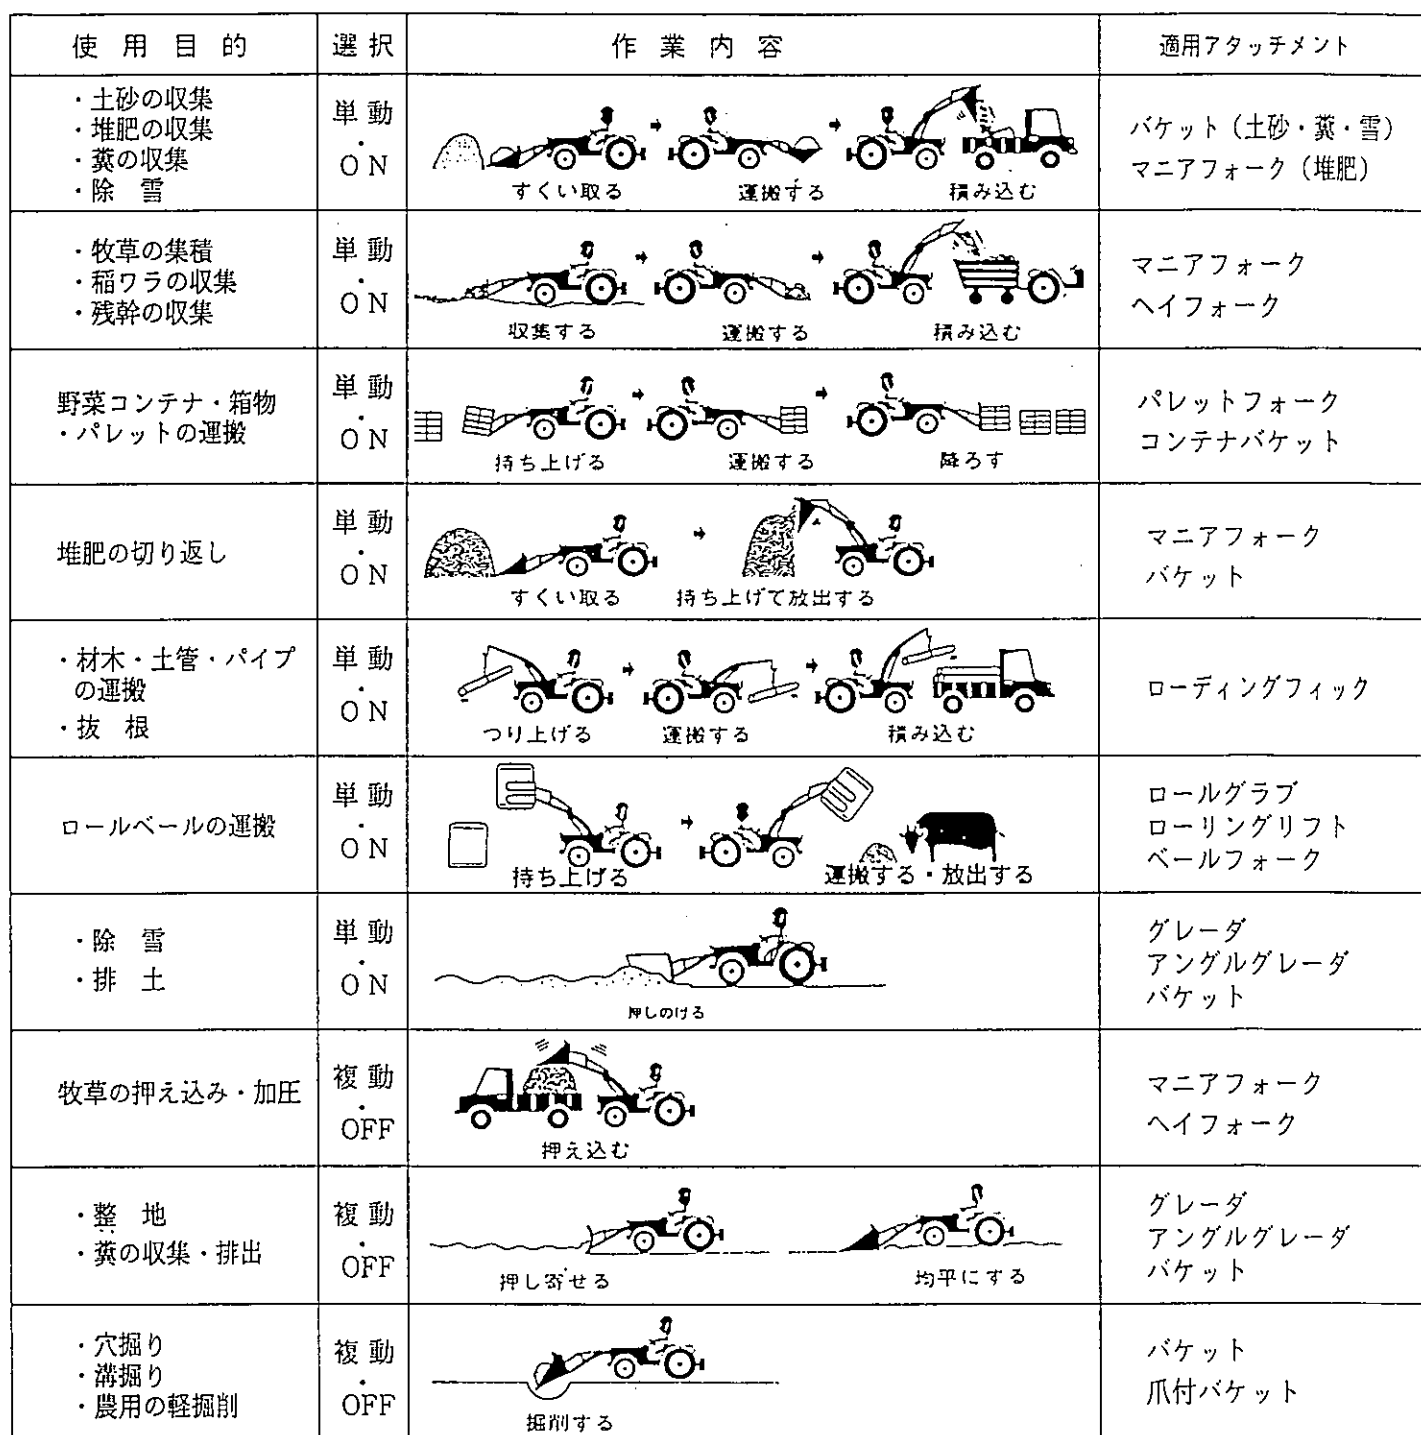 使用目的 選択 作業内容 適用アタッチメント
・土砂の収集
・堆肥の収集
・糞の収集
・除 雪
単動
・
ON
すくい取る 運搬する 積み込む
バケット（土砂・糞・雪）
マニアフォーク（堆肥）
・牧草の集積
・稲ワラの収集
・残幹の収集
単動
・
ON
収集する 運搬する 積み込む
マニアフォーク
ヘイフォーク
野菜コンテナ・箱物
・パレットの運搬
単動
・
ON
持ち上げる 運搬する 降ろす
パレットフォーク
コンテナバケット
堆肥の切り返し
単動
・
ON
すくい取る 持ち上げて放出する
マニアフォーク
バケット
・材木・土管・パイプ
の運搬
・抜 根
単動
・
ON
つり上げる 運搬する 積み込む
ローディングフィック
ロールベールの運搬
単動
・
ON
持ち上げる 運搬する・放出する
ロールグラブ
ローリングリフト
ベールフォーク
・除 雪
・排 土
単動
・
ON
押しのける
グレーダ
アングルグレーダ
バケット
牧草の押え込み・加圧
複動
・
OFF
押え込む
マニアフォーク
ヘイフォーク
・整 地
・糞の収集・排出
複動
・
OFF
押し寄せる 均平にする
グレーダ
アングルグレーダ
バケット
・穴掘り
・溝掘り
・農用の軽掘削
複動
・
OFF
掘削する
バケット
爪付バケット